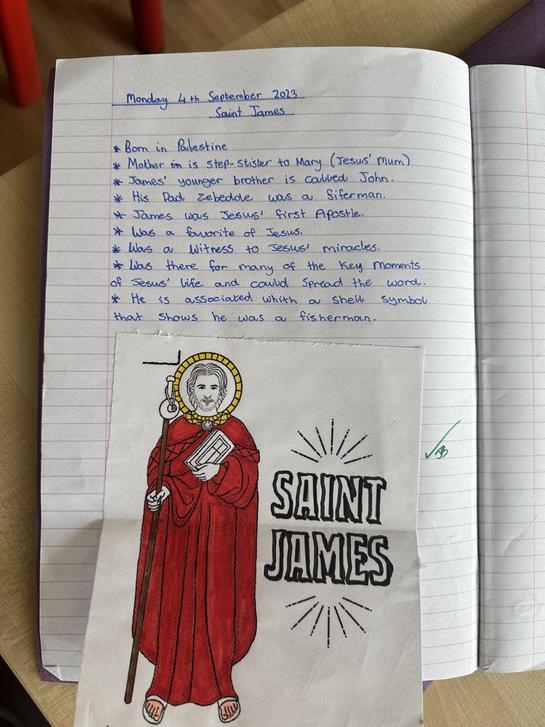 Monday 4th September 2023
Saint James
* Born in Palestine
* Mother is step-stister to Mary (Jesus' Mum)
* James' younger brother is called John.
* His Dad Zebedde was a fiferman.
* James was Jesus' first Apostle.
* Was a favorite of Jesus.
* Was a Witness to Jesus' miracles.
* Was there for many of the key moments
of Jesus' life and could spread the word.
* He is associated whith a shell symbol
that shows he was a fisherman.
SAINT
JAMES